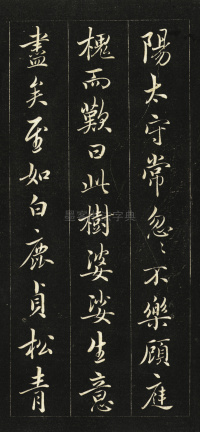 陽太守常忽〻不樂顧庭
槐而歎曰此樹婆娑生意
盡矣至如白鹿貞松青